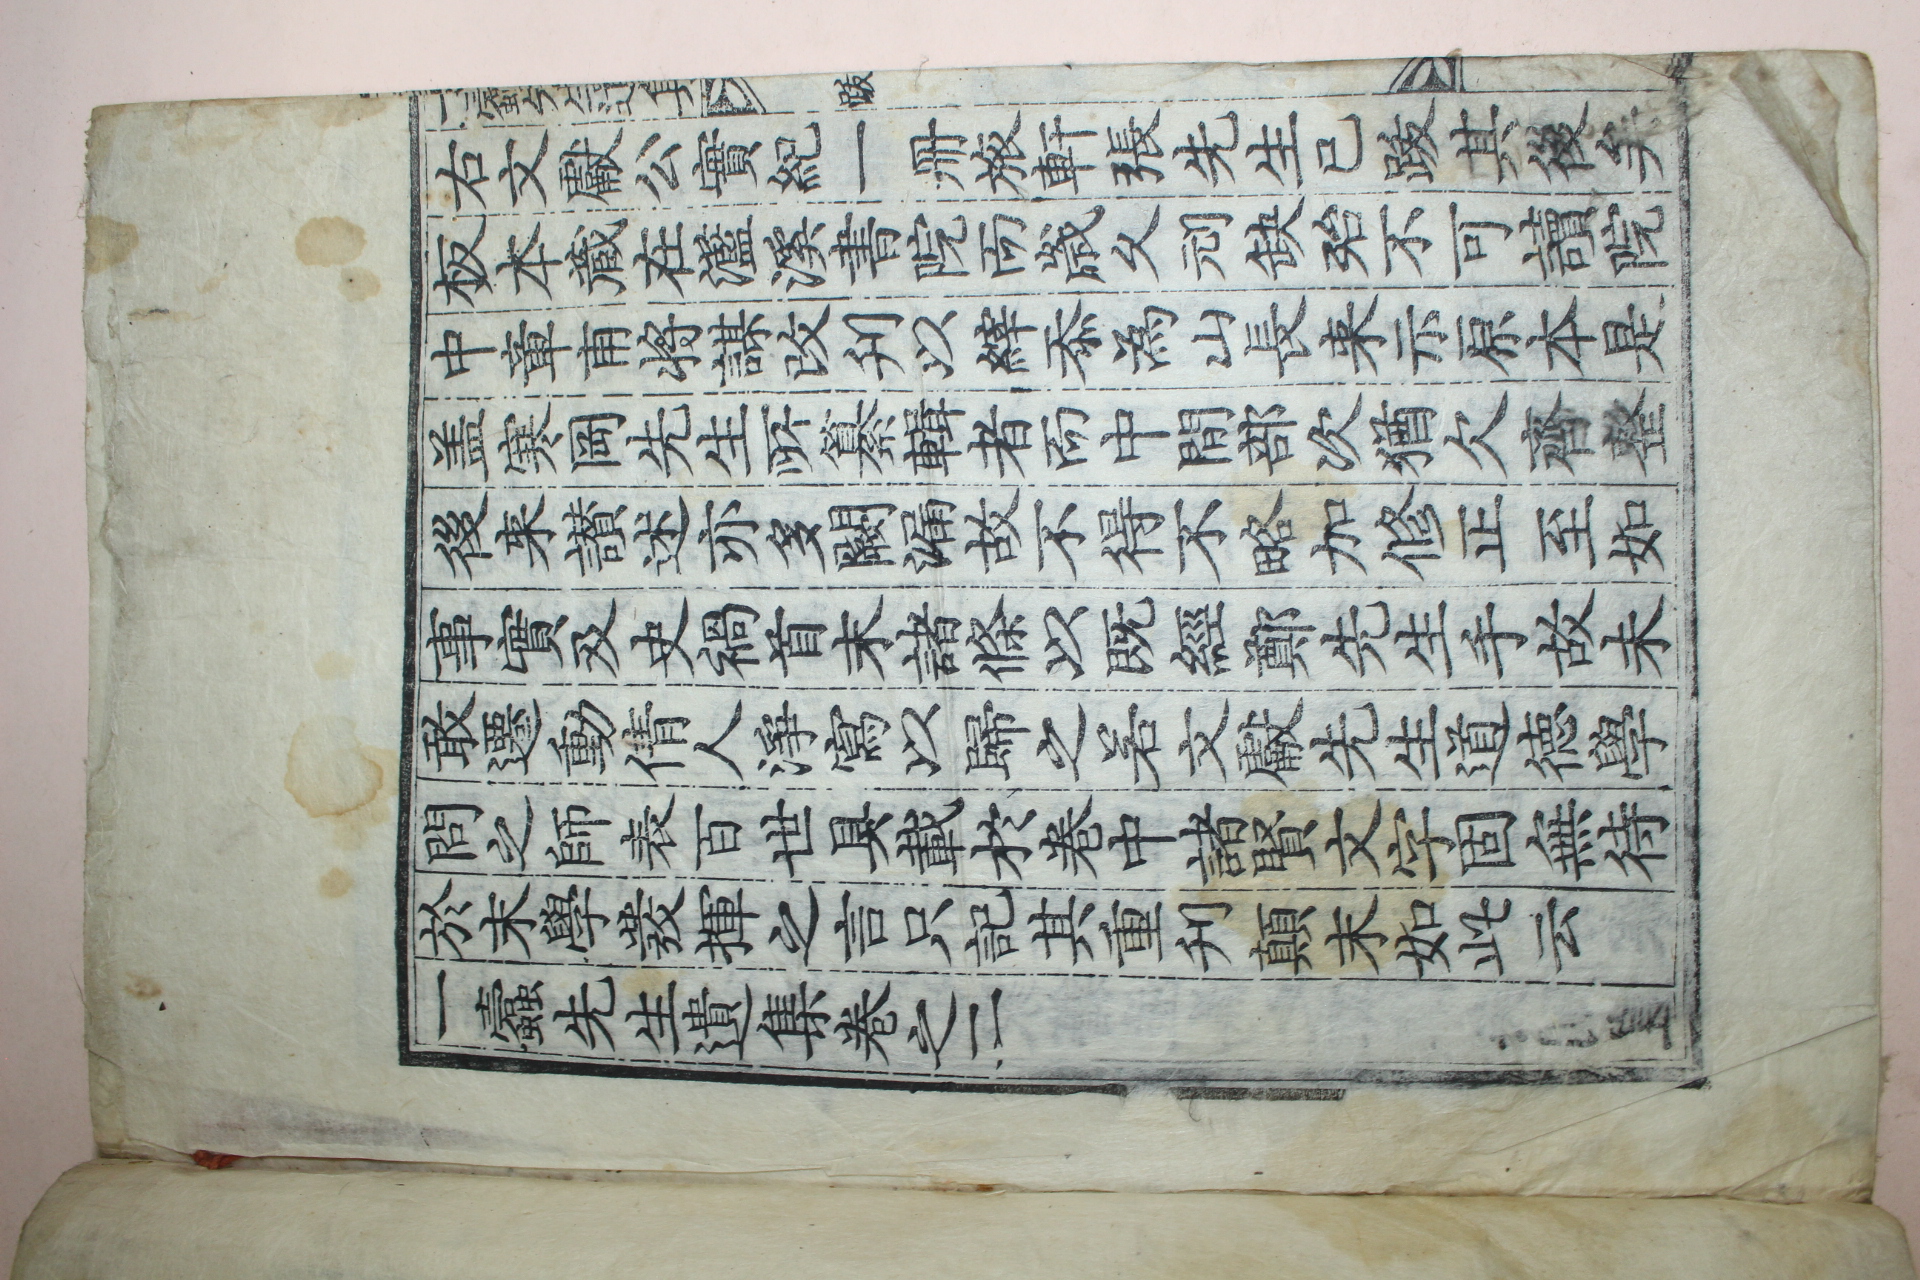 右文獻公實紀一冊旅軒張先生已跋其後矣
板本藏在灆溪書院而歲久刓缺殆不可讀院
中章甫將謀改刋以緯忝爲山長来示原本是
盖寒岡先生所纂輯者而中間部次猶欠齊整
後来讚述亦多闕漏故不得不略加修正至如
事實及史禍首末諸條以既經鄭先生手故未
敢遷動倩人淨寫以歸之若文獻先生道德學
問之師表百世具載於卷中諸賢文字固無待
於末學發揮之言只記其重刋顚末如此云
一蠹先生遺集卷之二